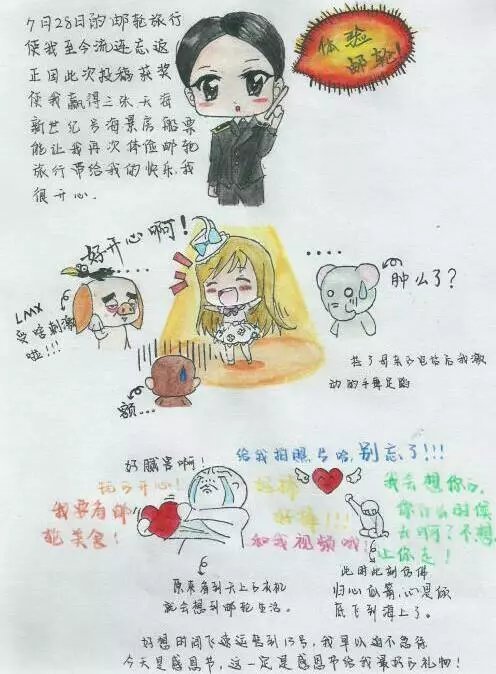 7月28日的邮轮旅行
使我至今流连忘返
正因此次投稿获奖
使我赢得三张天海
新世纪号海景房船票
能让我再次体验邮轮
旅行带给我的快乐,我
很开心.
体验
邮轮!
好开心啊!
LMX
受啥刺激
啦!!!
....
肿么了?
额...
接了母亲的电话后我激
动的手舞足蹈
好腻害啊!
玩的开心!
我要有邮
轮美食!
给我拍照片哈,别忘了!!!
好棒
好棒!!!
和我视频哦!
我会想你的
你什么时候
去啊?不想
让你走!
原来看到天上的灰机
就会想到邮轮生活。
此时此刻仿佛
归心似箭,心思似
底飞到海上了。
好想时间飞速运转到13号,我早以迫不急待
今天是感恩节,这一定是感恩节给我最好的礼物!